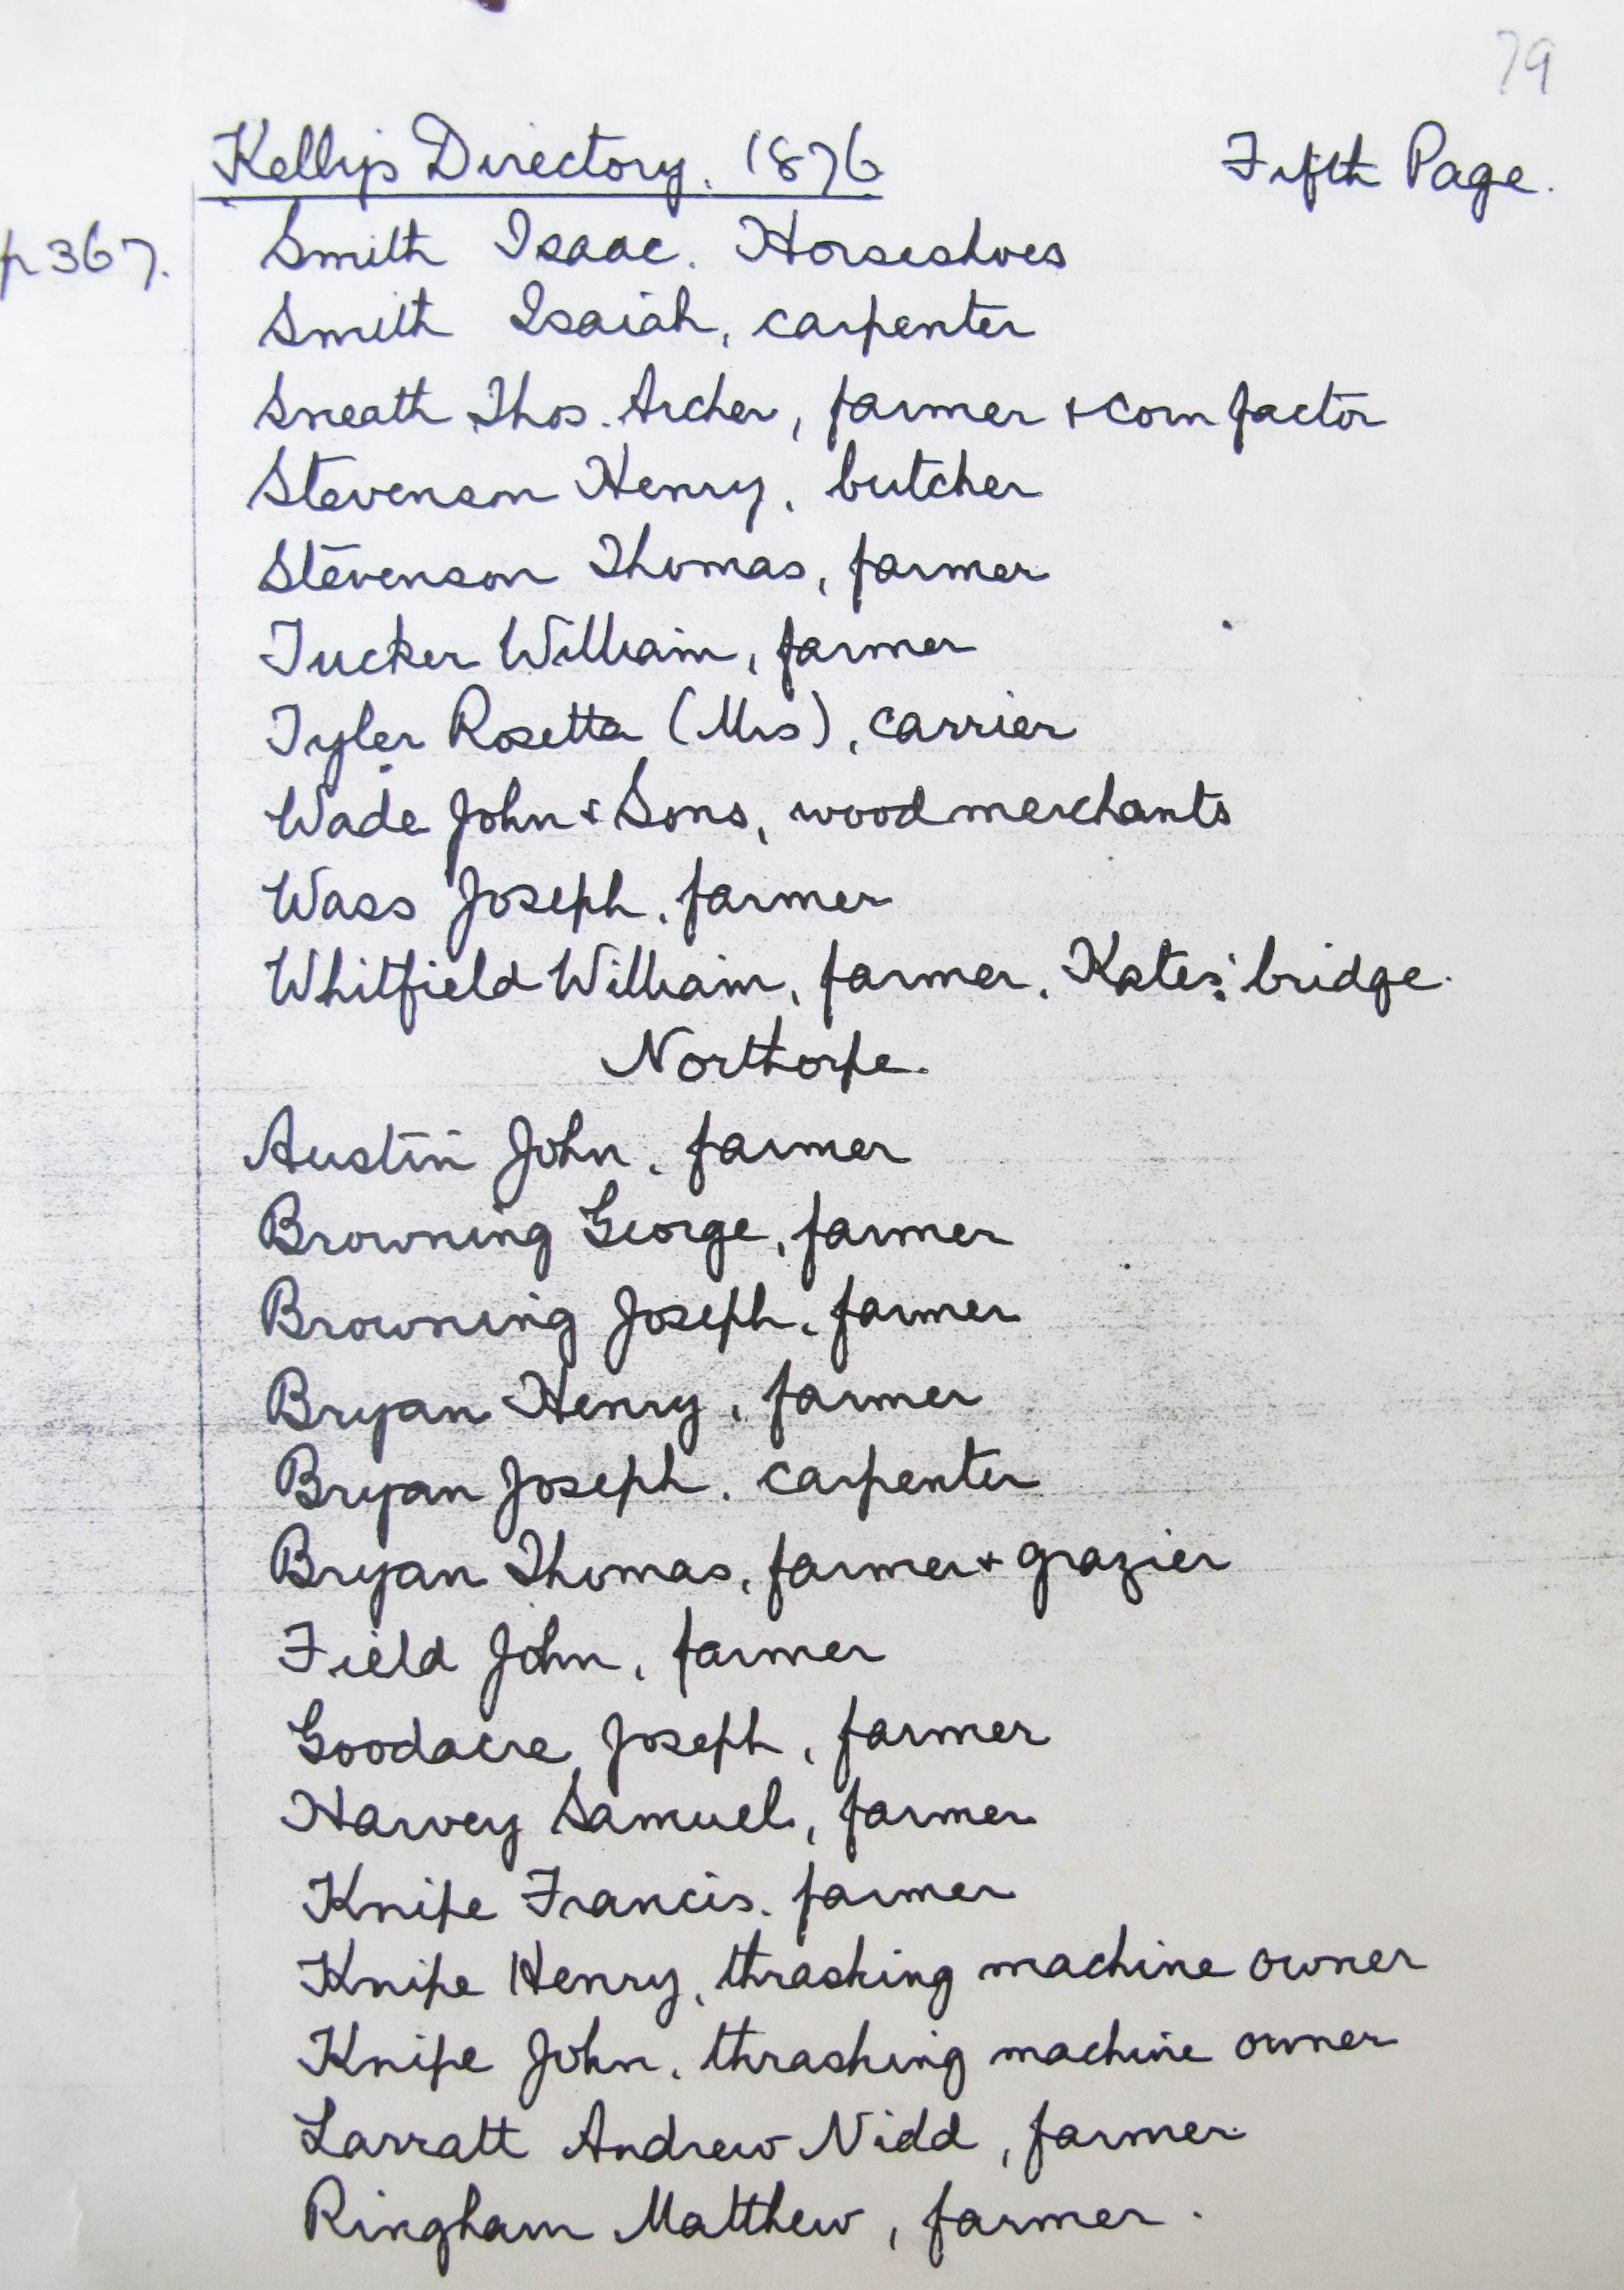 79
Kelly's Directory. 1876 Fifth Page.
p 367. Smith Isaac. Horseshoes
Smith Isaiah, carpenter
Sneath Thos. Archer, farmer & corn factor
Stevenson Henry, butcher
Stevenson Thomas, farmer
Tucker William, farmer
Tyler Rosetta (Mrs), carrier
Wade John & Sons, wood merchants
Wass Joseph, farmer
Whitfield William, farmer, Kates' bridge.
Northorpe.
Austin John, farmer
Browning George, farmer
Browning Joseph, farmer
Bryan Henry, farmer
Bryan Joseph. carpenter
Bryan Thomas, farmer & grazier
Field John, farmer
Goodacre Joseph, farmer
Harvey Samuel, farmer
Knipe Francis. farmer
Knipe Henry, thrashing machine owner
Knipe John, thrashing machine owner
Larratt Andrew Nidd, farmer.
Ringham Matthew, farmer.